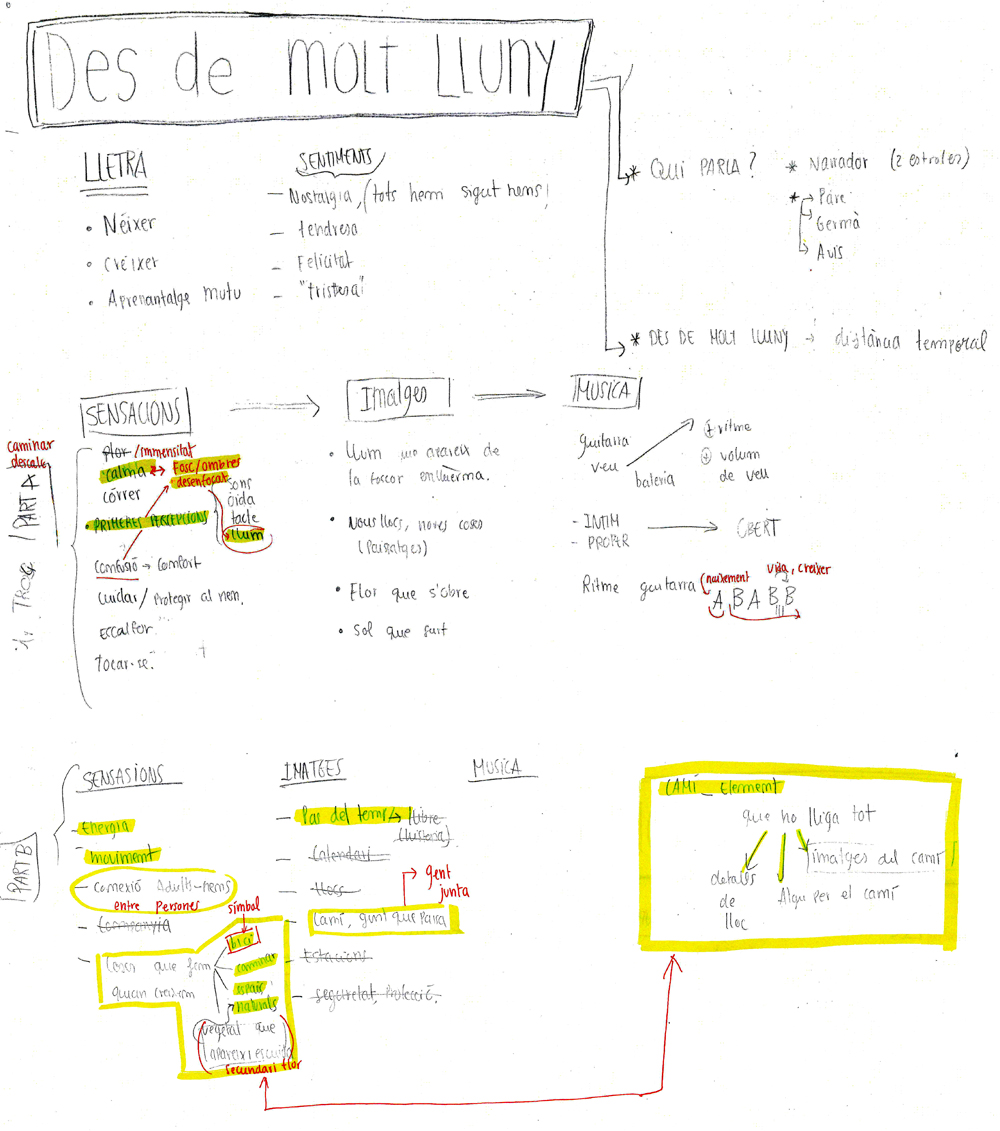 DES de MOLT LLUNY
LLETRA
• Néixer
• Créixer
• Aprenantalge mutu
SENTIMENTS
- Nostalgia, (tots hem sigut nens!
- tendresa
- Felicitat
- "tristesa"
* QUI PARLA?
* Narrador (2 estrofes)
* Pare
Germà
Avis
* DES DE MOLT LLUNY → distància temporal
caminar
descalç
1r. TROÇ / PART A
SENSACIONS
plor / immensitat
calma ↔ Fosc/ombres
desenfocat
córrer
• PRIMERES PERCEPCIONS
sons
oida
tacte
llum
Confusió → Comfort
Cuidar / Protegir al nen.
Escalfor
Tocar-se.
Imatges
• Llum que apareix de
la foscor enlluerna.
• Nous llocs, noves coses
(Paisatges)
• Flor que s'obre
• Sol que surt
MUSICA
guitarra
veu
bateria
+ ritme
+ volum
de veu
- INTIM
- PROPER
OBERT
Ritme guitarra
(naixement
vida, creixer
A B A B B
PART B
SENSASIONS
- Energia
- moviment
- Comexió Adults-nens
entre persones
- Companyia
- Coses que fem
quan creixem
símbol
bici
caminar
espais
naturals
vegetal que
apareixi escuida
secundari flor
IMATGES
- Pas del temps → llibre
(historia)
- Calendari
- Llocs
gent
junta
- Camí, gent que passa
- Estacions
- seguretat, Protecció.
MUSICA
CAMÍ_Element
que ho lliga tot
detalls
de
lloc
Algu per el camí
imatges del camí